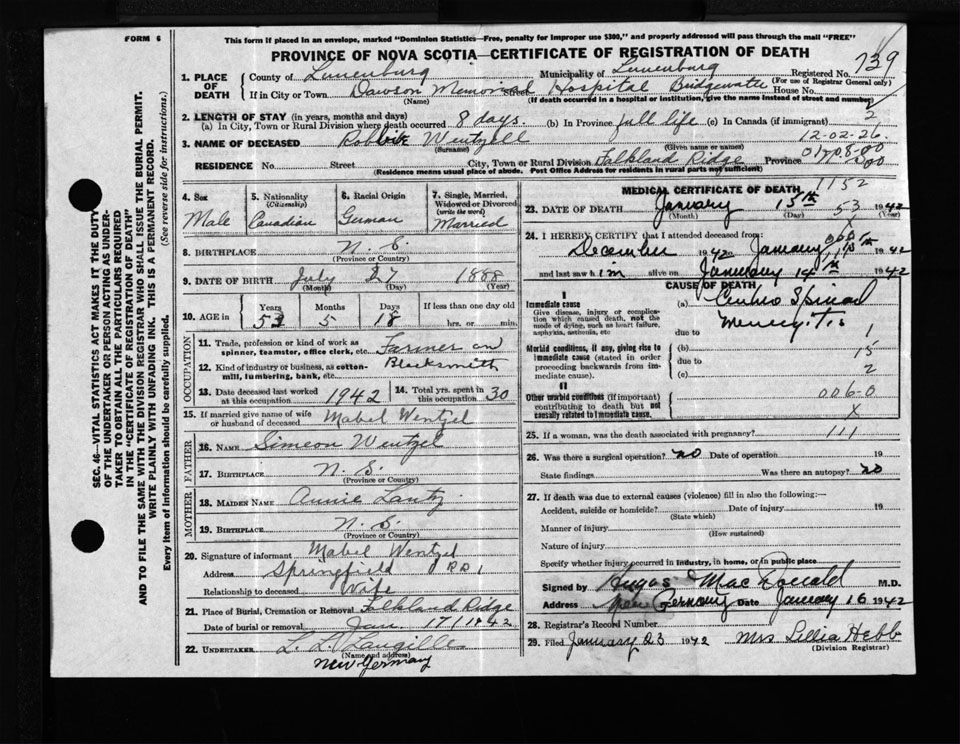 FORM 6
This form if placed in an envelope, marked "Dominion Statistics—Free, penalty for improper use $300," and properly addressed will pass through the mail "FREE"
PROVINCE OF NOVA SCOTIA—CERTIFICATE OF REGISTRATION OF DEATH
SEC. 46—VITAL STATISTICS ACT MAKES IT THE DUTY
OF THE UNDERTAKER OR PERSON ACTING AS UNDER-
TAKER TO OBTAIN ALL THE PARTICULARS REQUIRED
IN THE "CERTIFICATE OF REGISTRATION OF DEATH"
AND TO FILE THE SAME WITH THE DIVISION REGISTRAR WHO SHALL ISSUE THE BURIAL PERMIT.
WRITE PLAINLY WITH UNFADING INK. THIS IS A PERMANENT RECORD.
Every item of information should be carefully supplied. (See reverse side for instructions.)
1. PLACE OF DEATH
County of Lunenburg Municipality of Lunenburg Registered No. 739
(For use of Registrar General only)
If in City or Town Dawson Memorial Street Hospital Bridgewater House No.
(Name) (If death occurred in a hospital or institution, give the name instead of street and number)
2
2. LENGTH OF STAY (in years, months and days)
(a) In City, Town or Rural Division where death occurred 8 days. (b) In Province full life (c) In Canada (if immigrant)
12-02-26.
3. NAME OF DECEASED Wentzell
(Surname) (Given name or names)
RESIDENCE No. Street City, Town or Rural Division Falkland Ridge Province
(Residence means usual place of abode. Post Office Address for residents in rural parts not sufficient)
4. Sex
Male
5. Nationality (Citizenship)
Canadian
6. Racial Origin
German
7. Single, Married, Widowed or Divorced (write the word)
Married
8. BIRTHPLACE N. S.
(Province or Country)
9. DATE OF BIRTH July 27 1888
(Month) (Day) (Year)
10. AGE in Years Months Days If less than one day old
53 5 18 hrs. or min.
OCCUPATION
11. Trade, profession or kind of work as spinner, teamster, office clerk, etc. Farmer an
12. Kind of industry or business, as cotton-mill, lumbering, bank, etc. Blacksmith
13. Date deceased last worked at this occupation 1942
14. Total yrs. spent in this occupation 30
15. If married give name of wife or husband of deceased Mabel Wentzel
FATHER
16. NAME Simeon Wentzel
17. BIRTHPLACE N. S.
(Province or Country)
MOTHER
18. MAIDEN NAME Annie Lantz
19. BIRTHPLACE N. S.
(Province or Country)
20. Signature of informant Mabel Wentzel
Address Springfield RR 1
Relationship to deceased Wife
21. Place of Burial, Cremation or Removal Falkland Ridge
Date of burial or removal Jan. 17/1942
22. UNDERTAKER
(Name and address)
New Germany
MEDICAL CERTIFICATE OF DEATH
1152
23. DATE OF DEATH January 15th 1942
(Month) (Day) (Year)
53
24. I HEREBY CERTIFY that I attended deceased from:
December 1942 to January 1942
and last saw him alive on January 14th 1942
CAUSE OF DEATH
I
Immediate cause
Give disease, injury or complication which caused death, not the mode of dying, such as heart failure, asphyxia, asthenia, etc
(a) Cerebro Spinal
Meningitis
due to 1
Morbid conditions, if any, giving rise to immediate cause (stated in order proceeding backwards from immediate cause).
(b) 15
due to
(c) 2
II
Other morbid conditions (if important) contributing to death but not causally related to immediate cause.
006-0
X
25. If a woman, was the death associated with pregnancy? 111
26. Was there a surgical operation? no Date of operation 19
State findings Was there an autopsy? no
27. If death was due to external causes (violence) fill in also the following:—
Accident, suicide or homicide? Date of injury 19
(State which)
Manner of injury
(How sustained)
Nature of injury
Specify whether injury occurred in industry, in home, or in public place
Signed by Angus MacDonald M.D.
Address New Germany Date January 16 1942
28. Registrar's Record Number
29. Filed January 23 1942 Mrs Lellia Hebb
(Division Registrar)